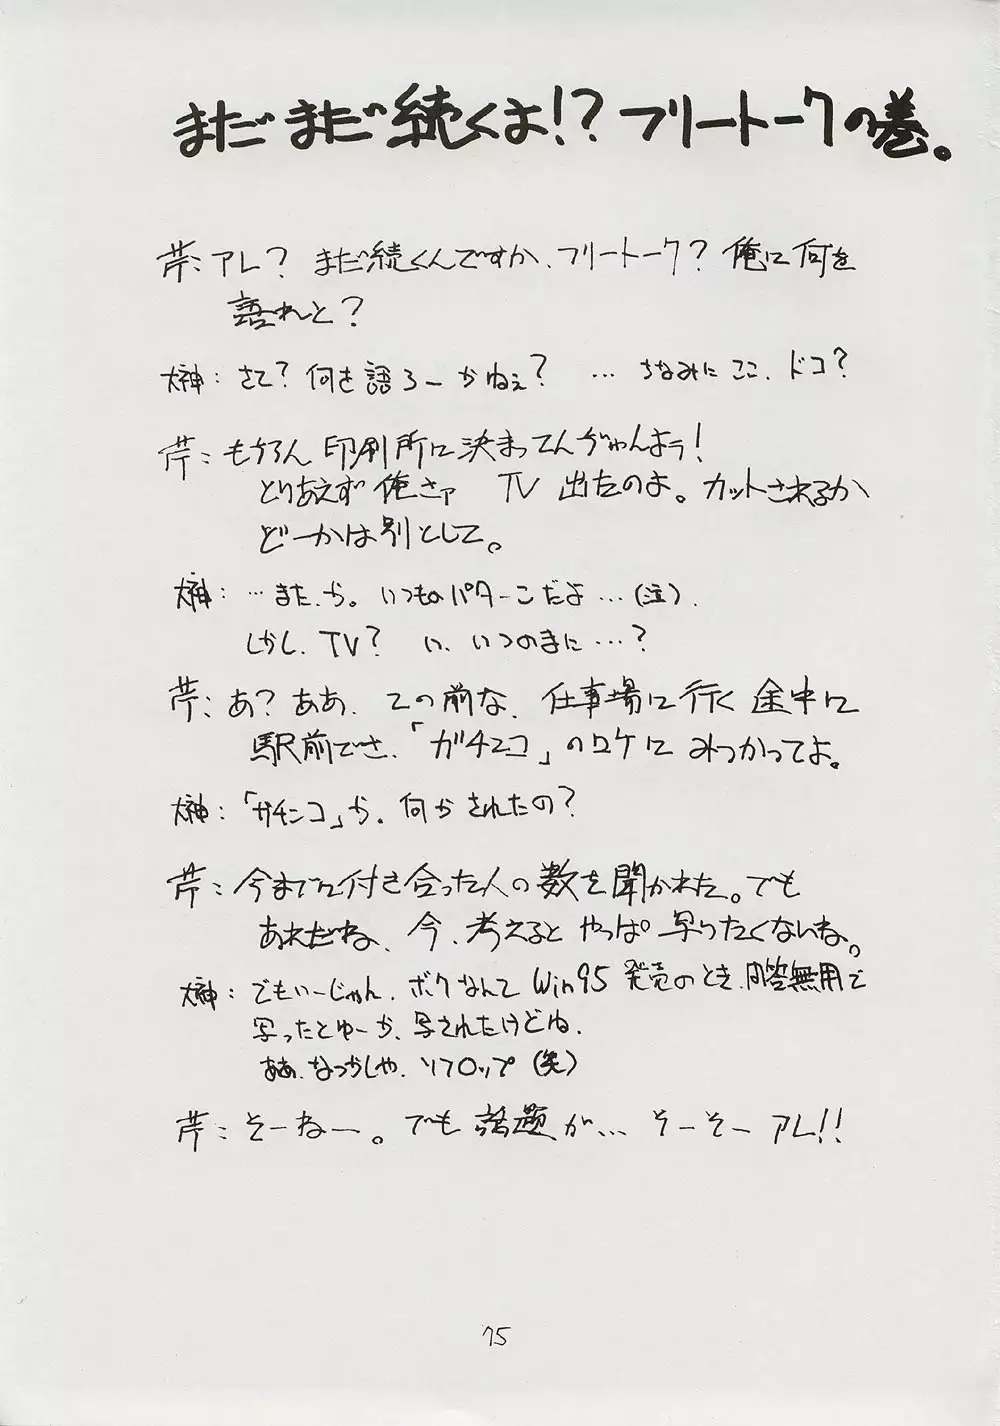 まだまだ続くよ!? フリートークの巻。
芹: アレ? まだ続くんですか、フリートーク? 俺に何を
語れと?
大神: さて? 何を語ろーかねぇ? … ちなみにここ、ドコ?
芹: もちろん 印刷所に決まってんぢゃんよう!
とりあえず俺さァ TV 出たのよ。カットされるか
どーかは別として。
大神: …また、か。いつものパターンだよ…(泣)、
しかし、TV? い、いつのまに…?
芹: あ? ああ、この前な、仕事場に行く途中に
駅前でさ、「ガチンコ」のロケに みつかってよ。
大神: 「ガチンコ」か。何かされたの?
芹: 今までに付き合った人の数を聞かれた。でも
あれだね、今、考えると やっぱ 写りたくないね。
大神: でもいーじゃん、ボクなんて Win95 発売のとき、問答無用で
写ったとゆーか、写されたけどね、
ああ、なつかしや、ソフロップ (笑)
芹: そーねー。でも 話題が… そーそー アレ!!
75